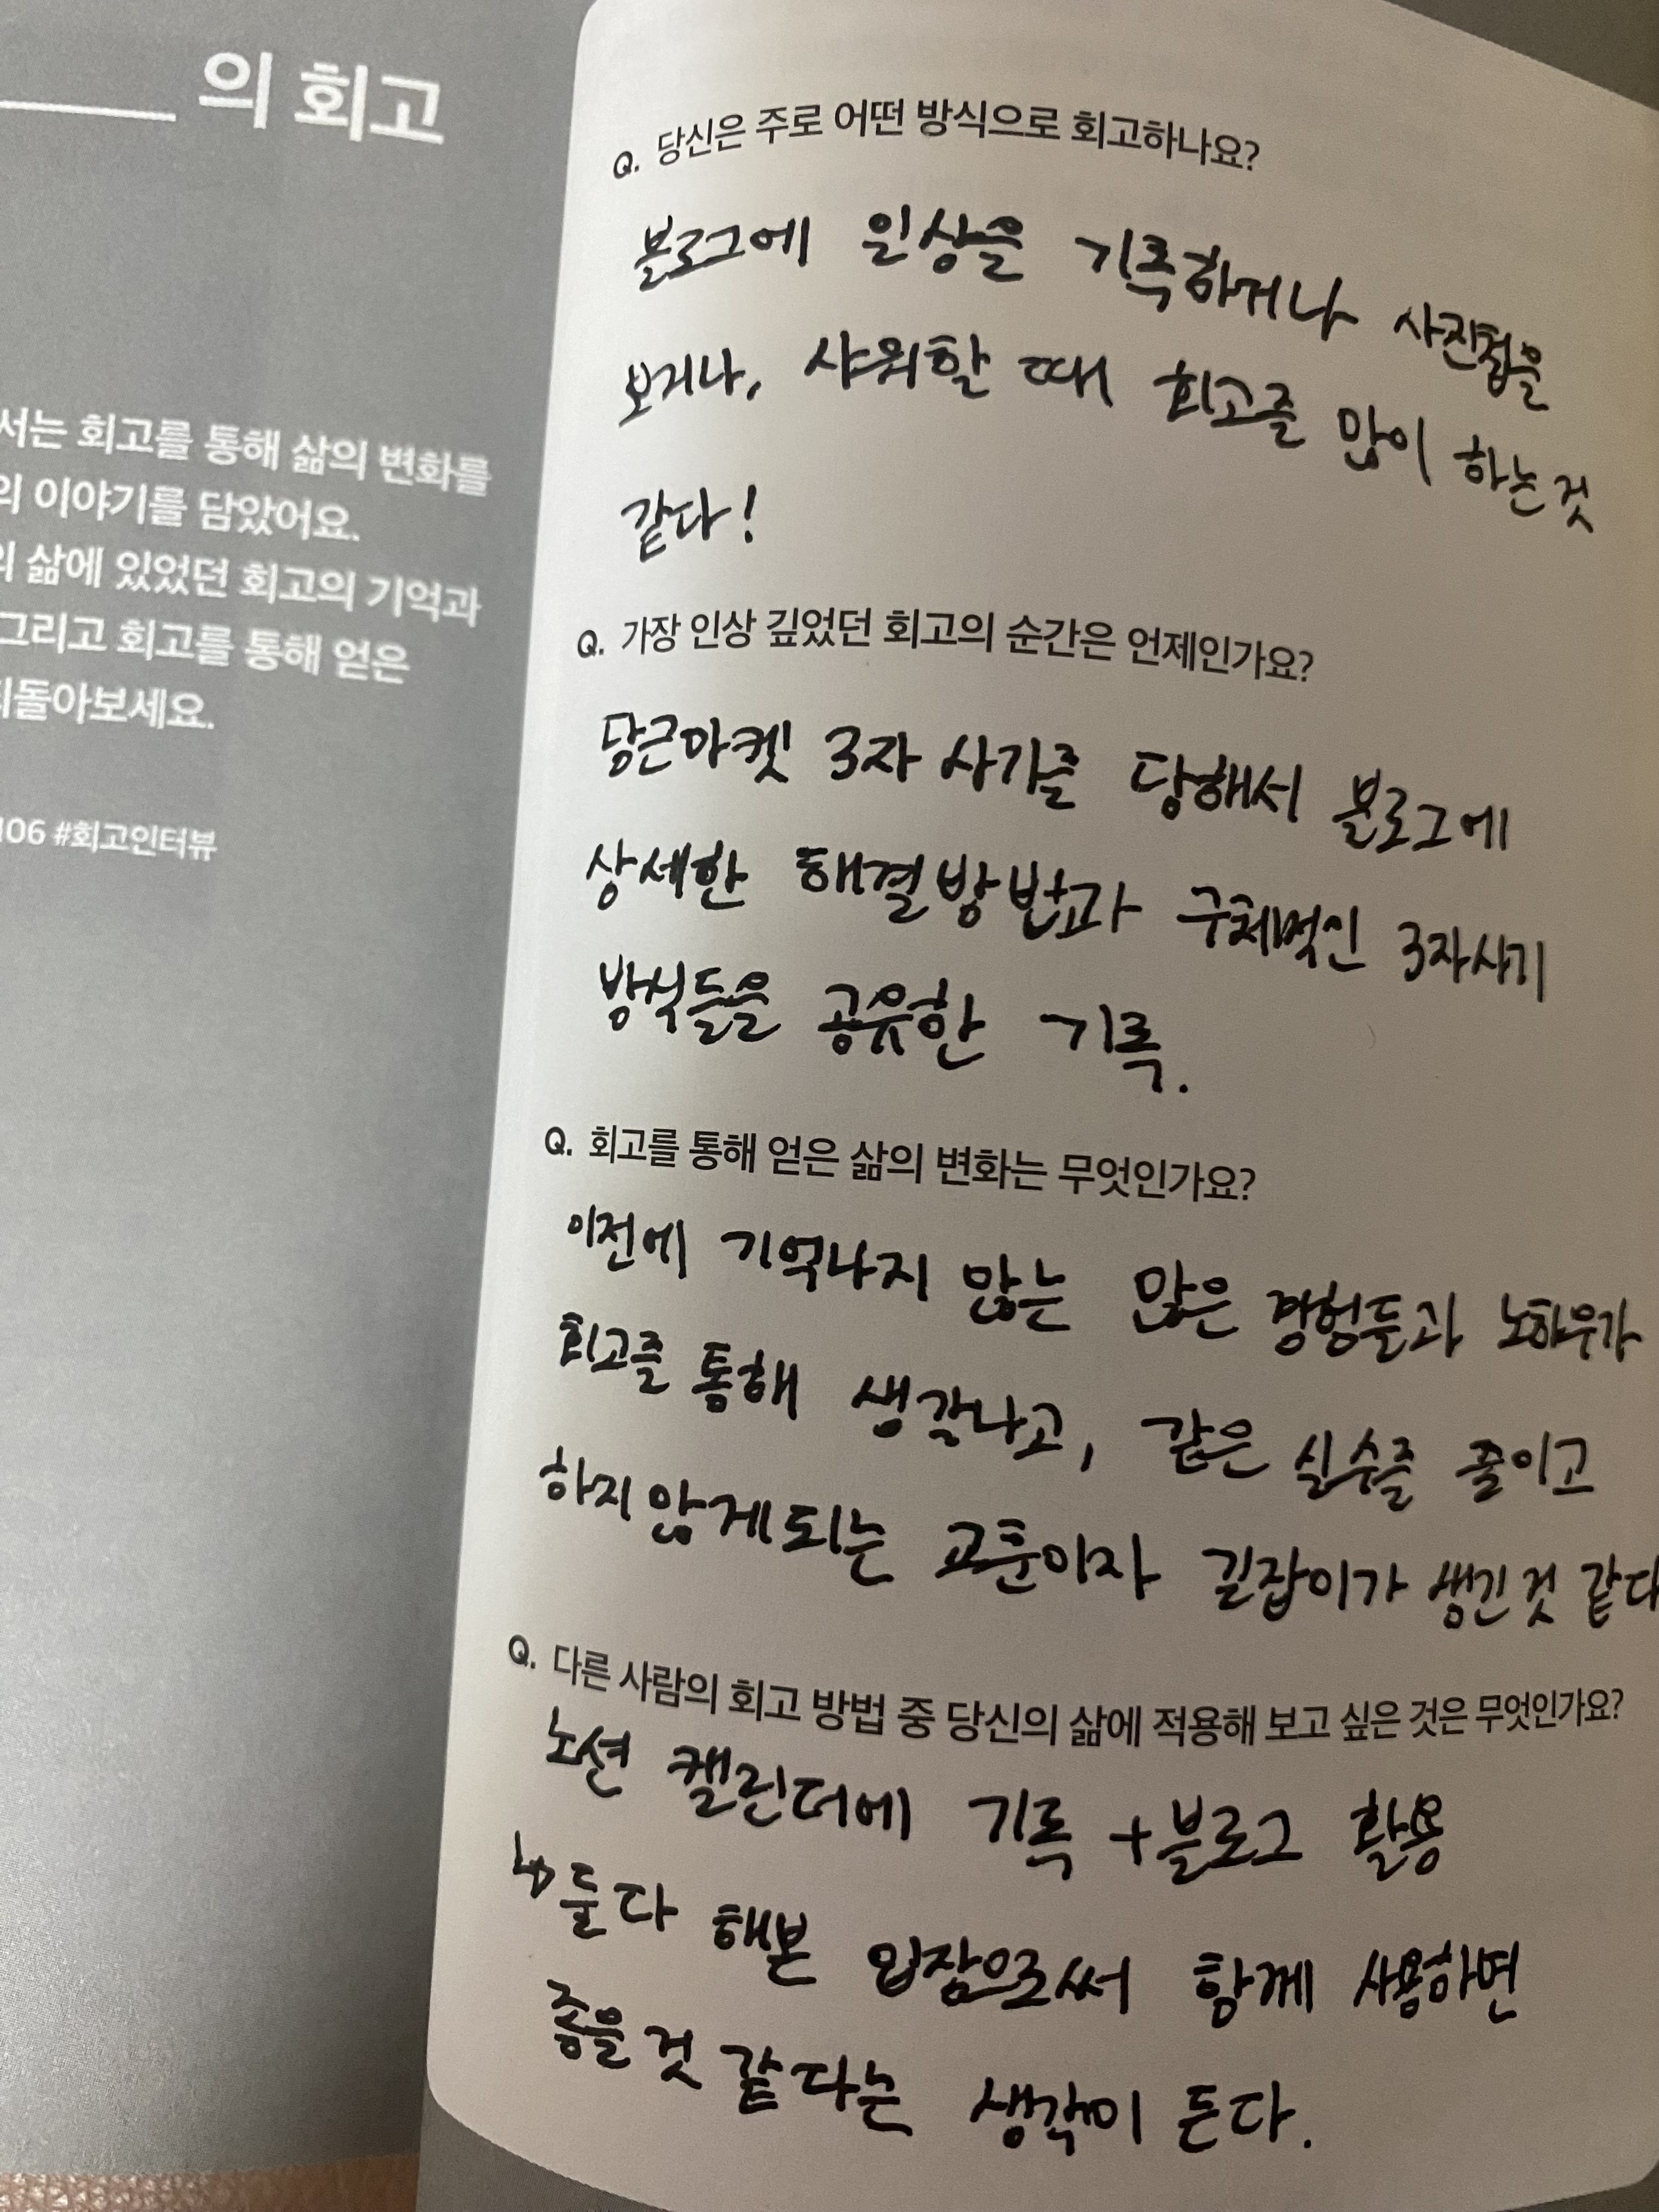 의 회고
서는 회고를 통해 삶의 변화를
의 이야기를 담았어요.
의 삶에 있었던 회고의 기억과
그리고 회고를 통해 얻은
되돌아보세요.
106 #회고인터뷰
Q. 당신은 주로 어떤 방식으로 회고하나요?
블로그에 일상을 기록하거나 사진첩을
보거나, 샤워할 때 회고를 많이 하는 것
같다!
Q. 가장 인상 깊었던 회고의 순간은 언제인가요?
당근마켓 3자 사기를 당해서 블로그에
상세한 해결방법과 구체적인 3자사기
방식들을 공유한 기록.
Q. 회고를 통해 얻은 삶의 변화는 무엇인가요?
이전에 기억나지 않는 많은 경험들과 노하우가
회고를 통해 생각나고, 같은 실수를 줄이고
하지 않게 되는 교훈이자 길잡이가 생긴 것 같다
Q. 다른 사람의 회고 방법 중 당신의 삶에 적용해 보고 싶은 것은 무엇인가요?
노션 캘린더에 기록 + 블로그 활용
↳ 둘 다 해본 입장으로써 함께 사용하면
좋을 것 같다는 생각이 든다.